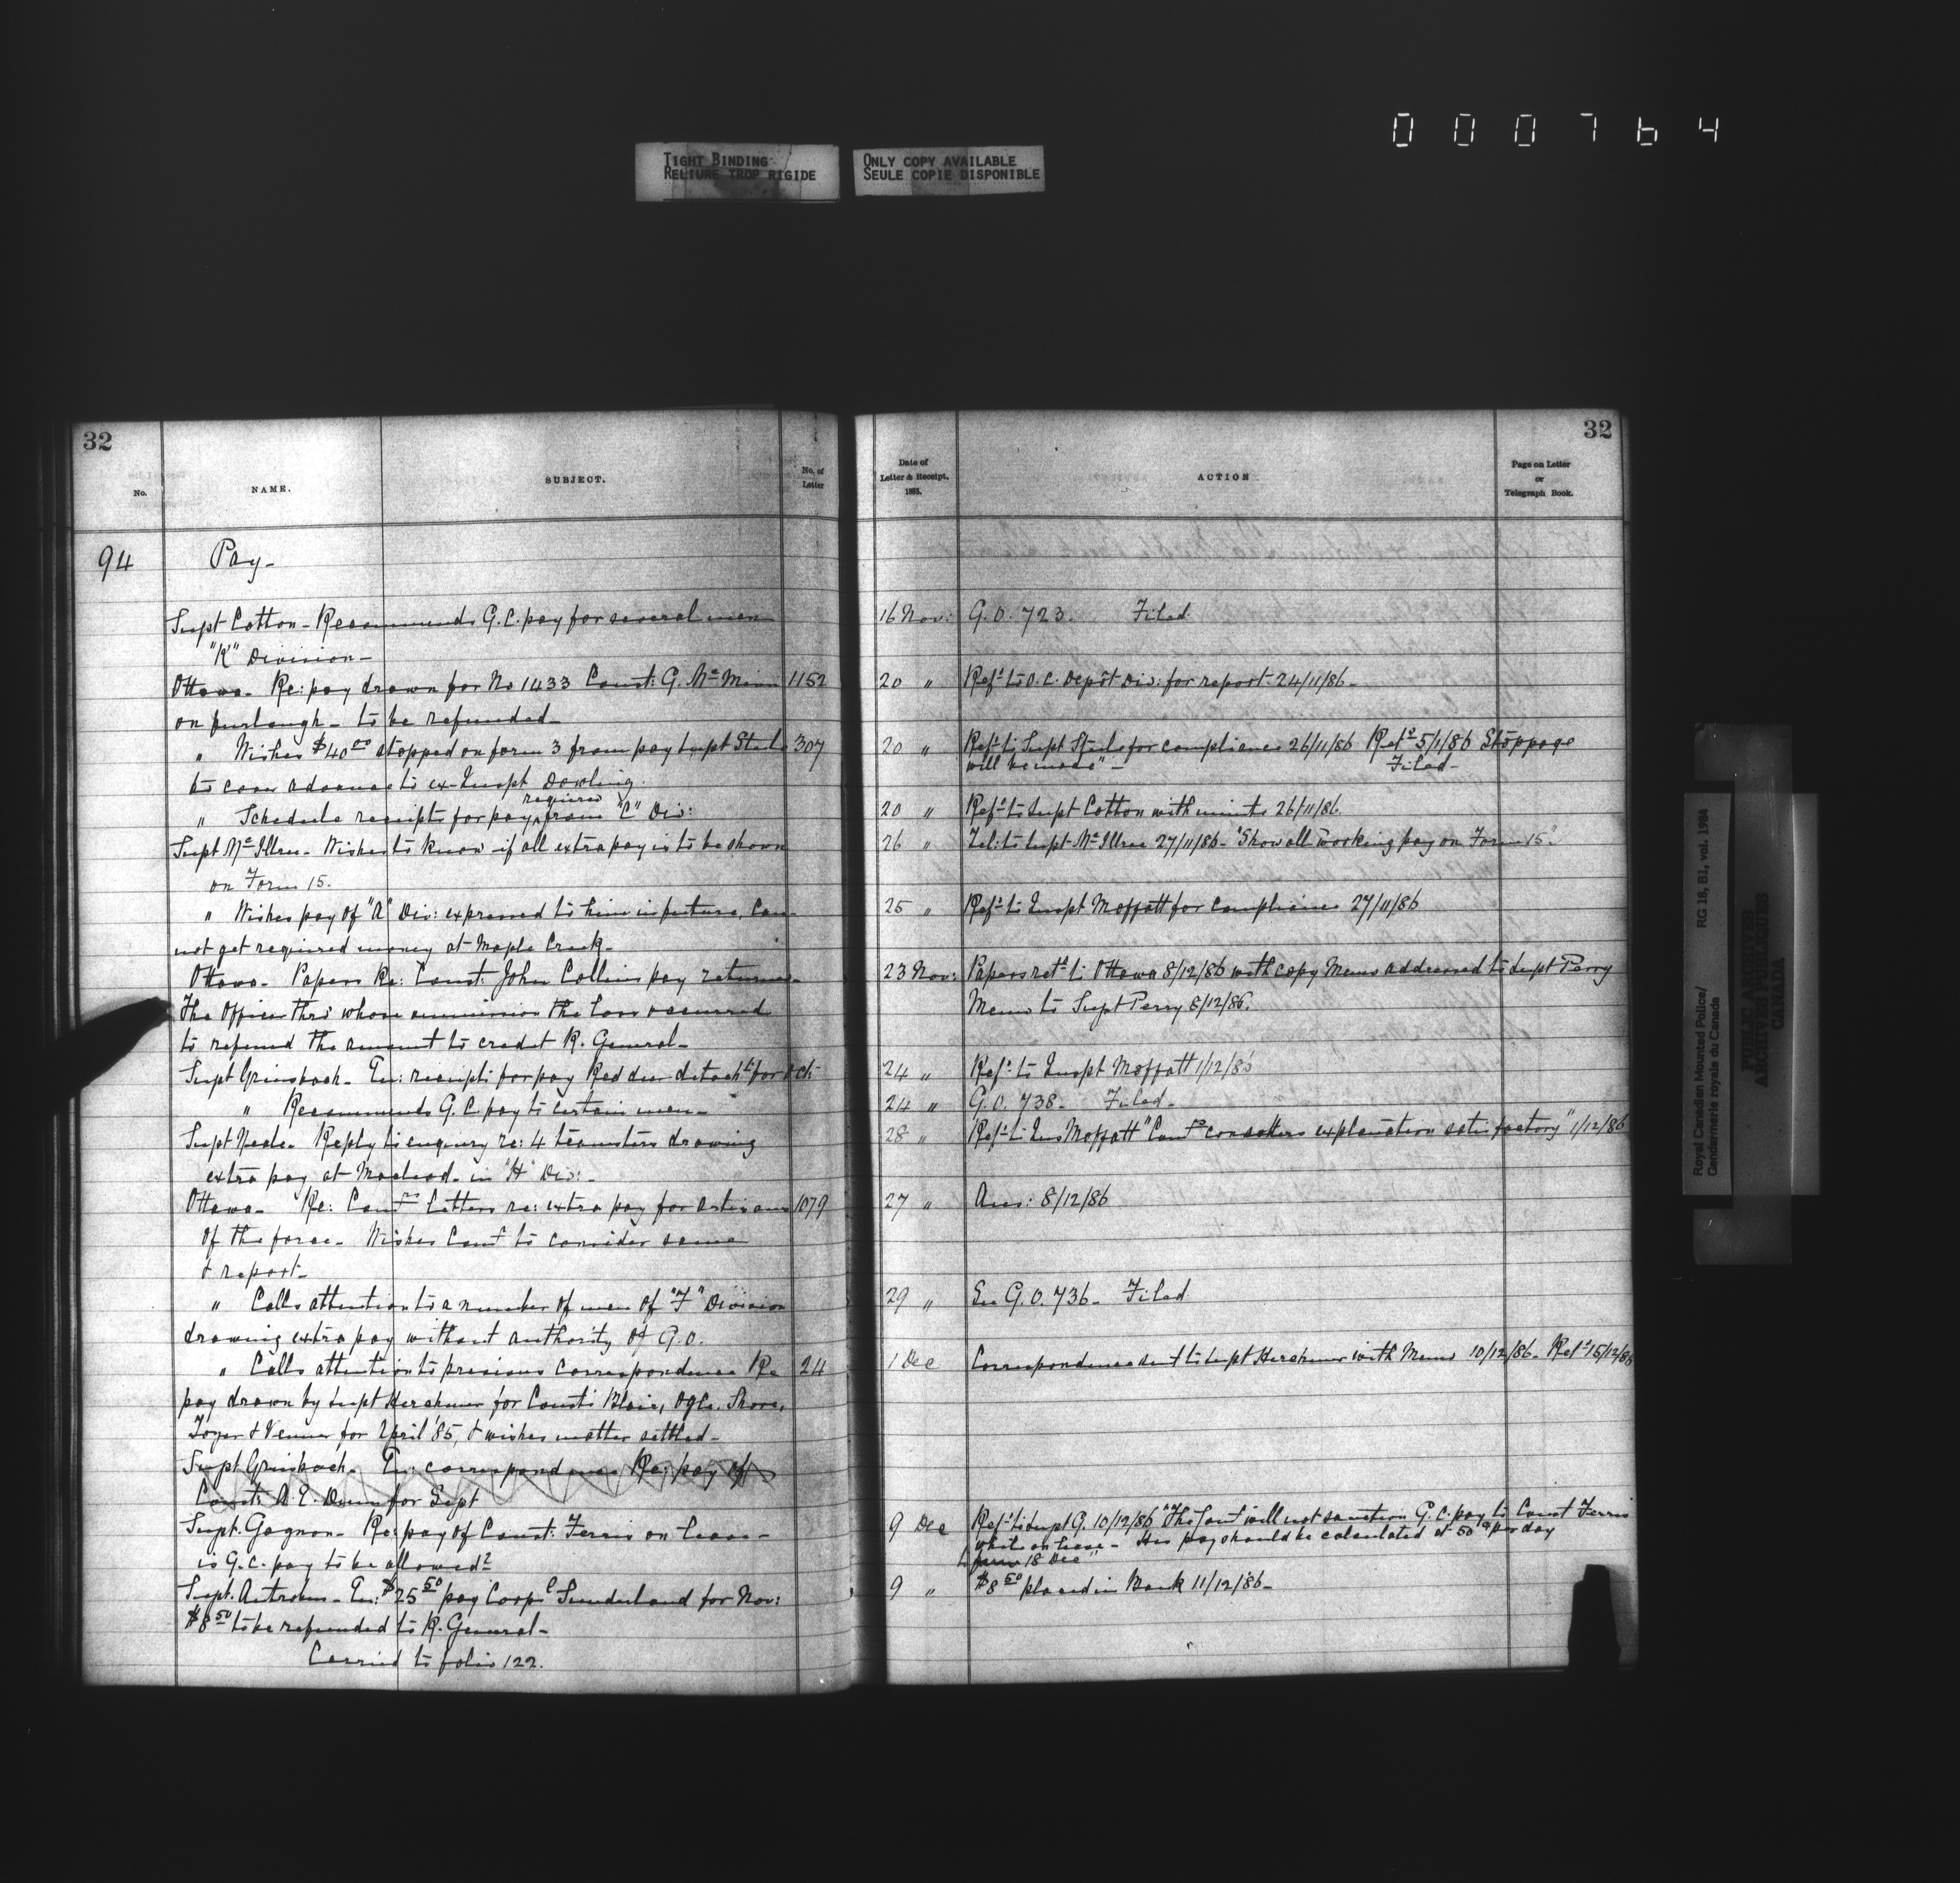 000764
TIGHT BINDING
RELIURE TROP RIGIDE
ONLY COPY AVAILABLE
SEULE COPIE DISPONIBLE
32
No.
NAME.
SUBJECT.
No. of
Letter
94
Pay-
Supt Cotton - Recommends G.C. pay for several men
"K" Division -
Ottawa - Re: pay drawn for No 1433 Const: G. Mc Minn 1152
on furlough - to be refunded -
" Wishes $40.00 stopped on form 3 from pay Supt Steele 307
to cover advance to ex-Inspt Dowling.
" Schedule receipts for pay required from "C" Div:
Supt Mc Illree - Wishes to know if all extra pay is to be shown
on Form 15.
" Wishes pay of "A" Div: expressed to him in future, Can-
not get required money at Maple Creek -
Ottawa - Papers Re: Const: John Collins pay returned -
The Officer thro' whose omission the loss occurred
to refund the amount to credit R. General -
Supt Griesbach - En: receipts for pay Red deer detacht for Oct:
" Recommends G.C. pay to certain men -
Supt Neale - Reply to enquiry re: 4 teamsters drawing
extra pay at Macleod - in "H" Div: -
Ottawa - Re: Comrs Letters re: extra pay for artisans 1079
of the force - Wishes Comr to consider same
& report -
" Calls attention to a number of men of "F" Division
drawing extra pay without authority of G.O.
" Calls attention to previous correspondence Re 24
pay drawn by Supt Herchmer for Consts Blair, Ogle, Shore,
& Venner for April '85, & wishes matter settled -
Supt Griesbach - En: correspondence Re: pay of
Const: A.E. Dunn for Sept
Supt. Gagnon - Re: pay of Const: Ferris on leave -
is G.C. pay to be allowed?
Supt. Antrobus - En: $25.50 pay Corpl Sunderland for Nov:
$8.50 to be refunded to R. General -
Carried to folio 122.
32
Date of
Letter & Receipt,
1885.
ACTION
Page on Letter
or
Telegraph Book.
16 Nov: G.O. 723. Filed.
20 " Refd to O.C. Depôt Div: for report 24/11/86 -
20 " Refd to Supt Steele for compliance 26/11/86 Retd 5/1/86 "Stoppage
will be made" - Filed -
20 " Refd to Supt Cotton with minute 26/11/86.
26 " Tel: to Supt Mc Illree 27/11/86 - "Show all working pay on Form 15".
25 " Refd to Inspt Moffatt for compliance 27/11/86
23 Nov: Papers retd to Ottawa 8/12/86 with copy Memo addressed to Supt Perry
Memo to Supt Perry 8/12/86.
24 " Refd to Inspt Moffatt 1/12/86
24 " G.O. 738 - Filed -
28 " Refd to Ins Moffatt "Comr considers explanation satisfactory" 1/12/86
27 " Ans: 8/12/86
29 " See G.O. 736 - Filed
1 Dec Correspondence sent to Supt Herchmer with Memo 10/12/86 - Retd 15/12/86
9 Dec Refd to Supt G. 10/12/86 "The Comr will not sanction G.C. pay to Const Ferris
while on leave - His pay should be calculated at 50c per day
from 18 Dec"
9 " $8.50 placed in Bank 11/12/86 -
Royal Canadian Mounted Police/
Gendarmerie royale du Canada
RG 18, B1, vol. 1984
PUBLIC ARCHIVES
ARCHIVES PUBLIQUES
CANADA